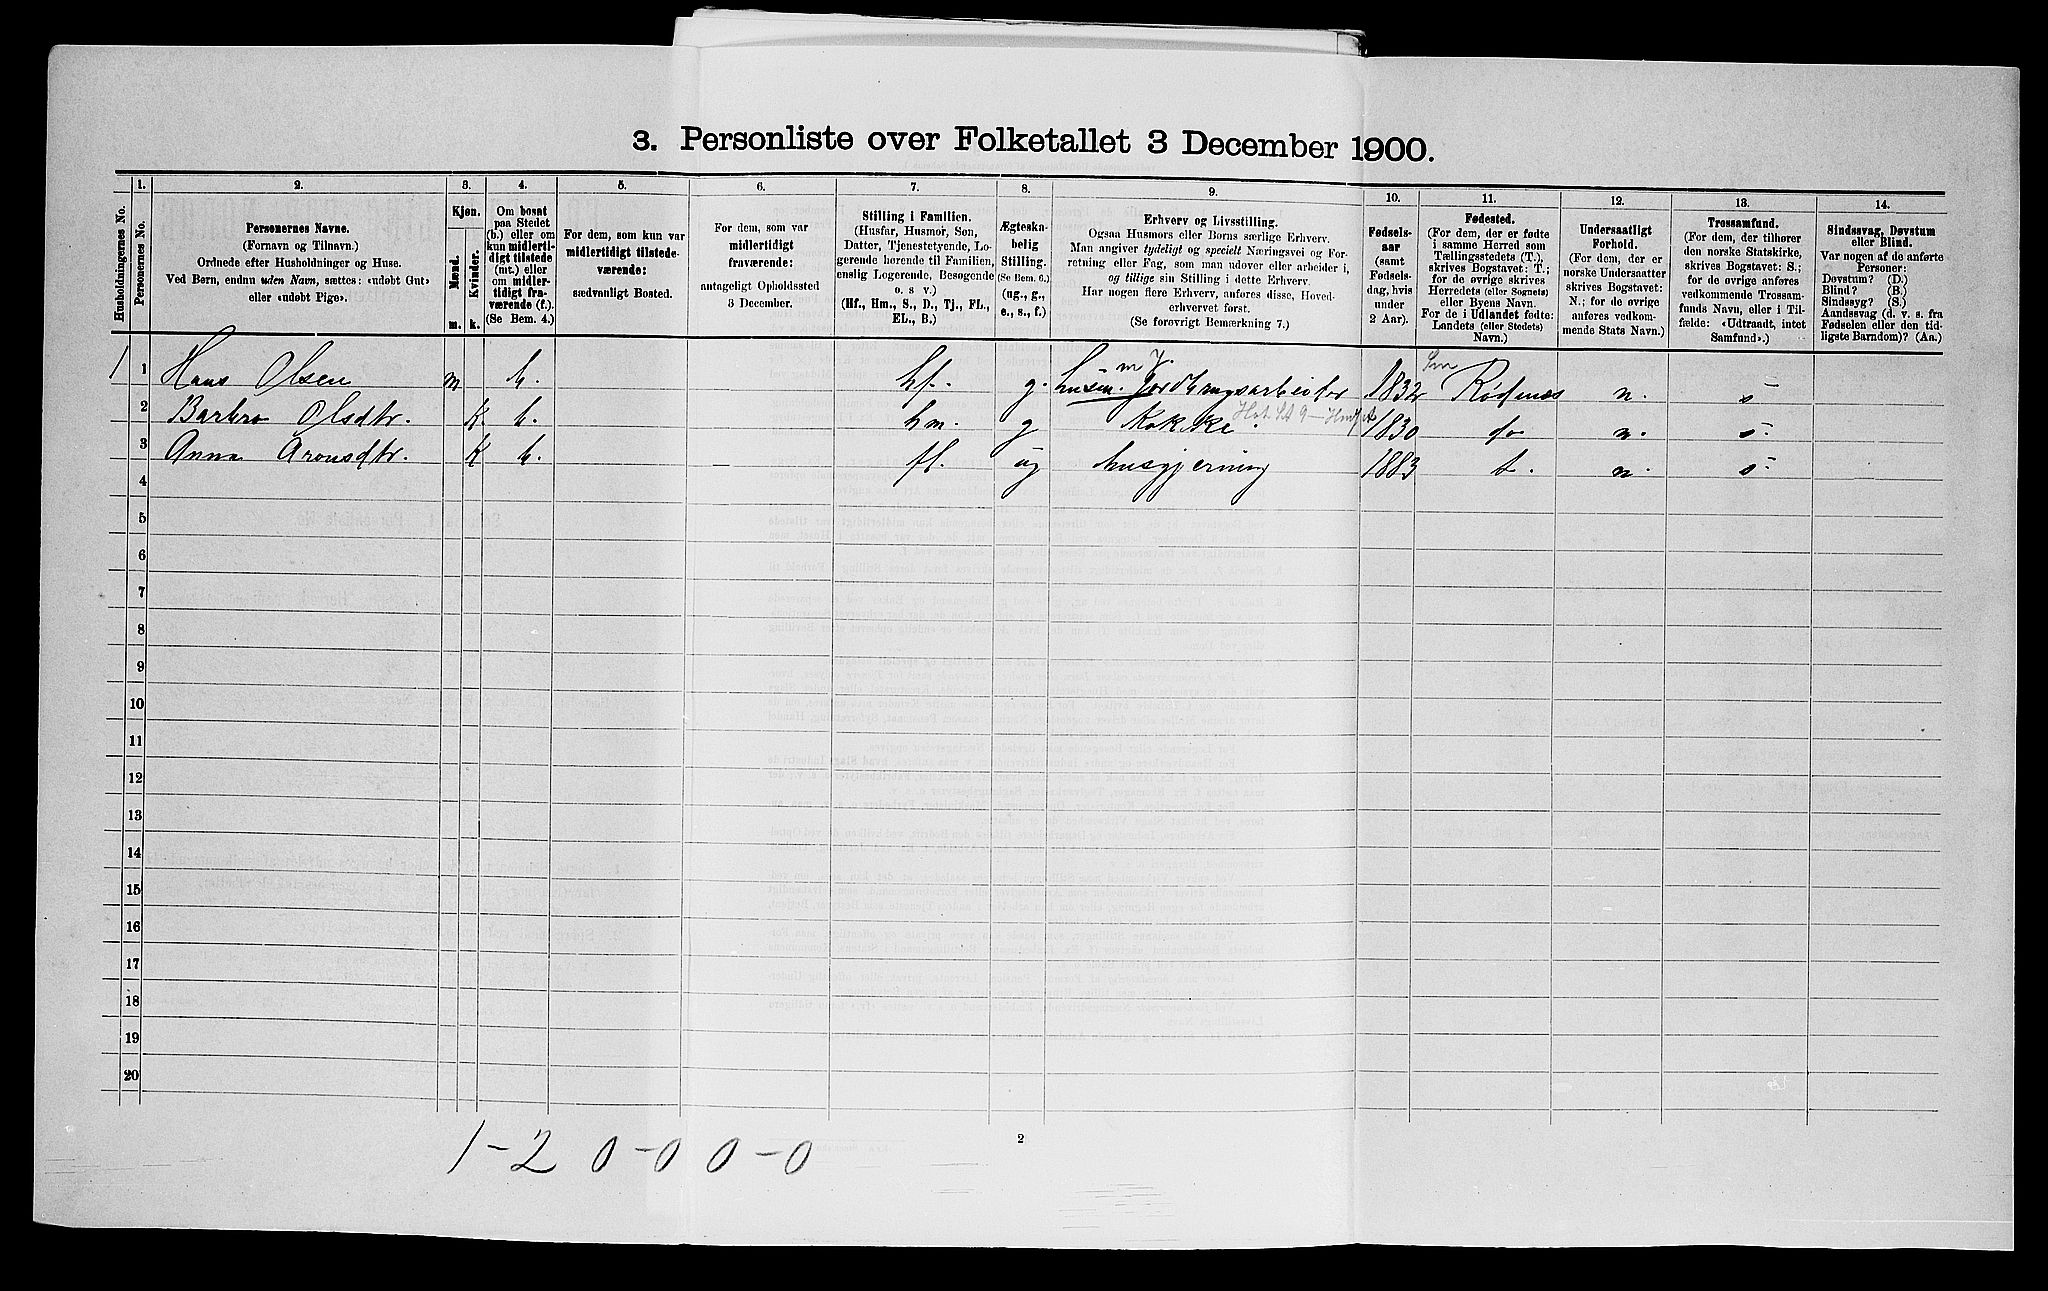 3. Personliste over Folketallet 3 December 1900.
1. 2. 3. 4. 5. 6. 7. 8. 9. 10. 11. 12. 13. 14.
Husholdningernes No.
Personernes No.
Personernes Navne.
(Fornavn og Tilnavn.)
Ordnede efter Husholdninger og Huse.
Ved Børn, endnu uden Navn, sættes: «udøbt Gut»
eller «udøbt Pige».
Kjøn.
Mænd.
Kvinder.
m. k.
Om bosat
paa Stedet
(b.) eller om
kun midlerti-
digt tilstede
(mt.) eller
om midler-
tidigt fra-
værende (f.).
(Se Bem. 4.)
For dem, som kun var
midlertidigt tilstede-
værende:
sædvanligt Bosted.
For dem, som var
midlertidigt
fraværende:
antageligt Opholdssted
3 December.
Stilling i Familien.
(Husfar, Husmor, Søn,
Datter, Tjenestetyende, Lo-
gerende hørende til Familien,
enslig Logerende, Besøgende
o. s v.)
(Hf., Hm., S., D., Tj., FL.,
EL., B.)
Ægteska-
belig
Stilling.
(Se Bem. 6.)
(ug., g.,
e., s., f.)
Erhverv og Livsstilling.
Ogsaa Husmors eller Børns særlige Erhverv.
Man angiver tydeligt og specielt Næringsvei og For-
retning eller Fag, som man udøver eller arbeider i,
og tillige sin Stilling i dette Erhverv.
Har nogen flere Erhverv, anføres disse, Hoved-
erhvervet først.
(Se forøvrigt Bemærkning 7.)
Fødsels-
aar
(samt
Fødsels-
dag, hvis
under
2 Aar).
Fødested.
(For dem, der er fødte
i samme Herred som
Tællingsstedets (T.),
skrives Bogstavet: T.;
for de øvrige skrives
Herredets (eller Sognets)
eller Byens Navn.
For de i Udlandet fødte:
Landets (eller Stedets)
Navn.)
Undersaatligt
Forhold.
(For dem, der er
norske Undersaatter
skrives Bogstavet:
N.; for de øvrige
anføres vedkom-
mende Stats Navn.)
Trossamfund.
(For dem, der tilhører
den norske Statskirke,
skrives Bogstavet: S.;
for de øvrige anføres
vedkommende Trossam-
funds Navn, eller i Til-
fælde: «Udtraadt, intet
Samfund».)
Sindssvag, Døvstum
eller Blind.
Var nogen af de anførte
Personer:
Døvstum? (D.)
Blind? (B.)
Sindssyg? (S.)
Aandssvag (d. v. s. fra
Fødselen eller den tid-
ligste Barndom)? (Aa.)
1 1 Hans Olsen m b. hf. g. husm. m J. Jordbrugsarbeider 1832 Rødenes n. s
2 Barbro Olsdtr. K b. hm. g Kokke. 1830 do n. s.
3 Anna Aronsdtr. K b. fl. ug husgjerning 1883 t. n. s.
4
5
6
7
8
9
10
11
12
13
14
15
16
17
18
19
20
2
1-2 0-0 0-0